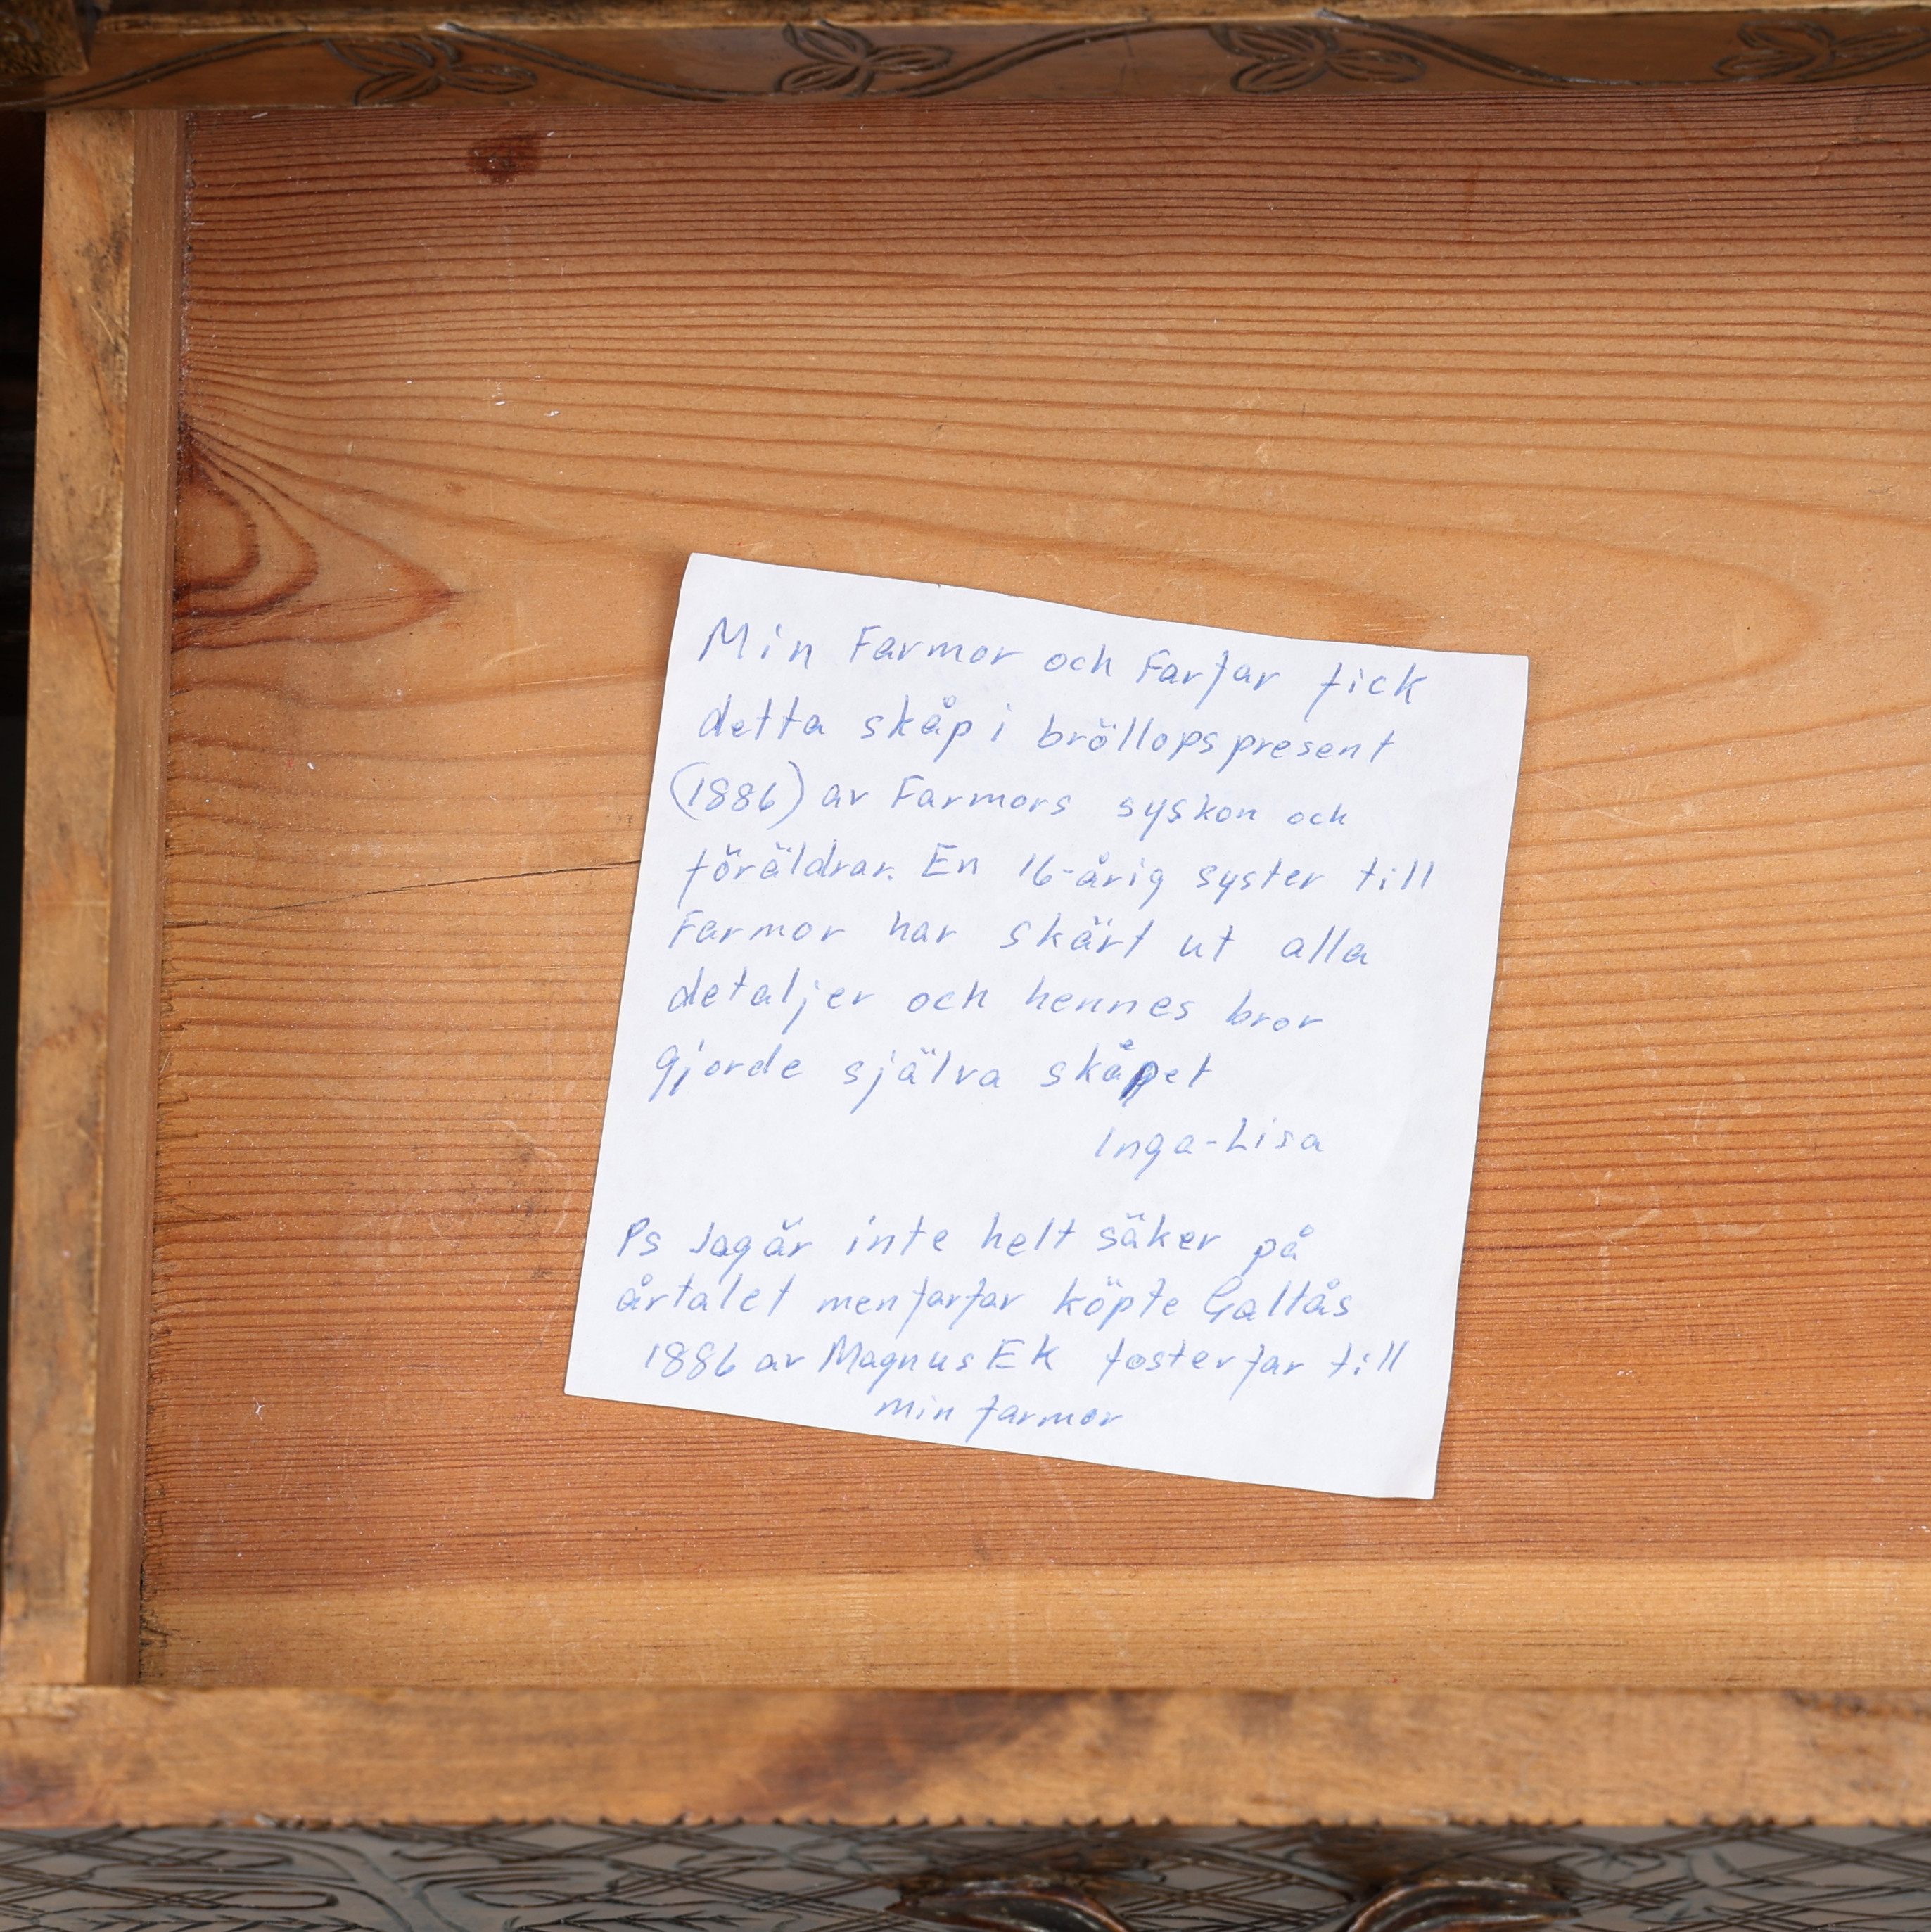 Min Farmor och Farfar fick
detta skåp i bröllopspresent
(1886) av Farmors syskon och
föräldrar. En 16-årig syster till
Farmor har skärt ut alla
detaljer och hennes bror
gjorde själva skåpet
Inga-Lisa
Ps Jag är inte helt säker på
årtalet men farfar köpte Galtås
1886 av Magnus Ek fosterfar till
min farmor